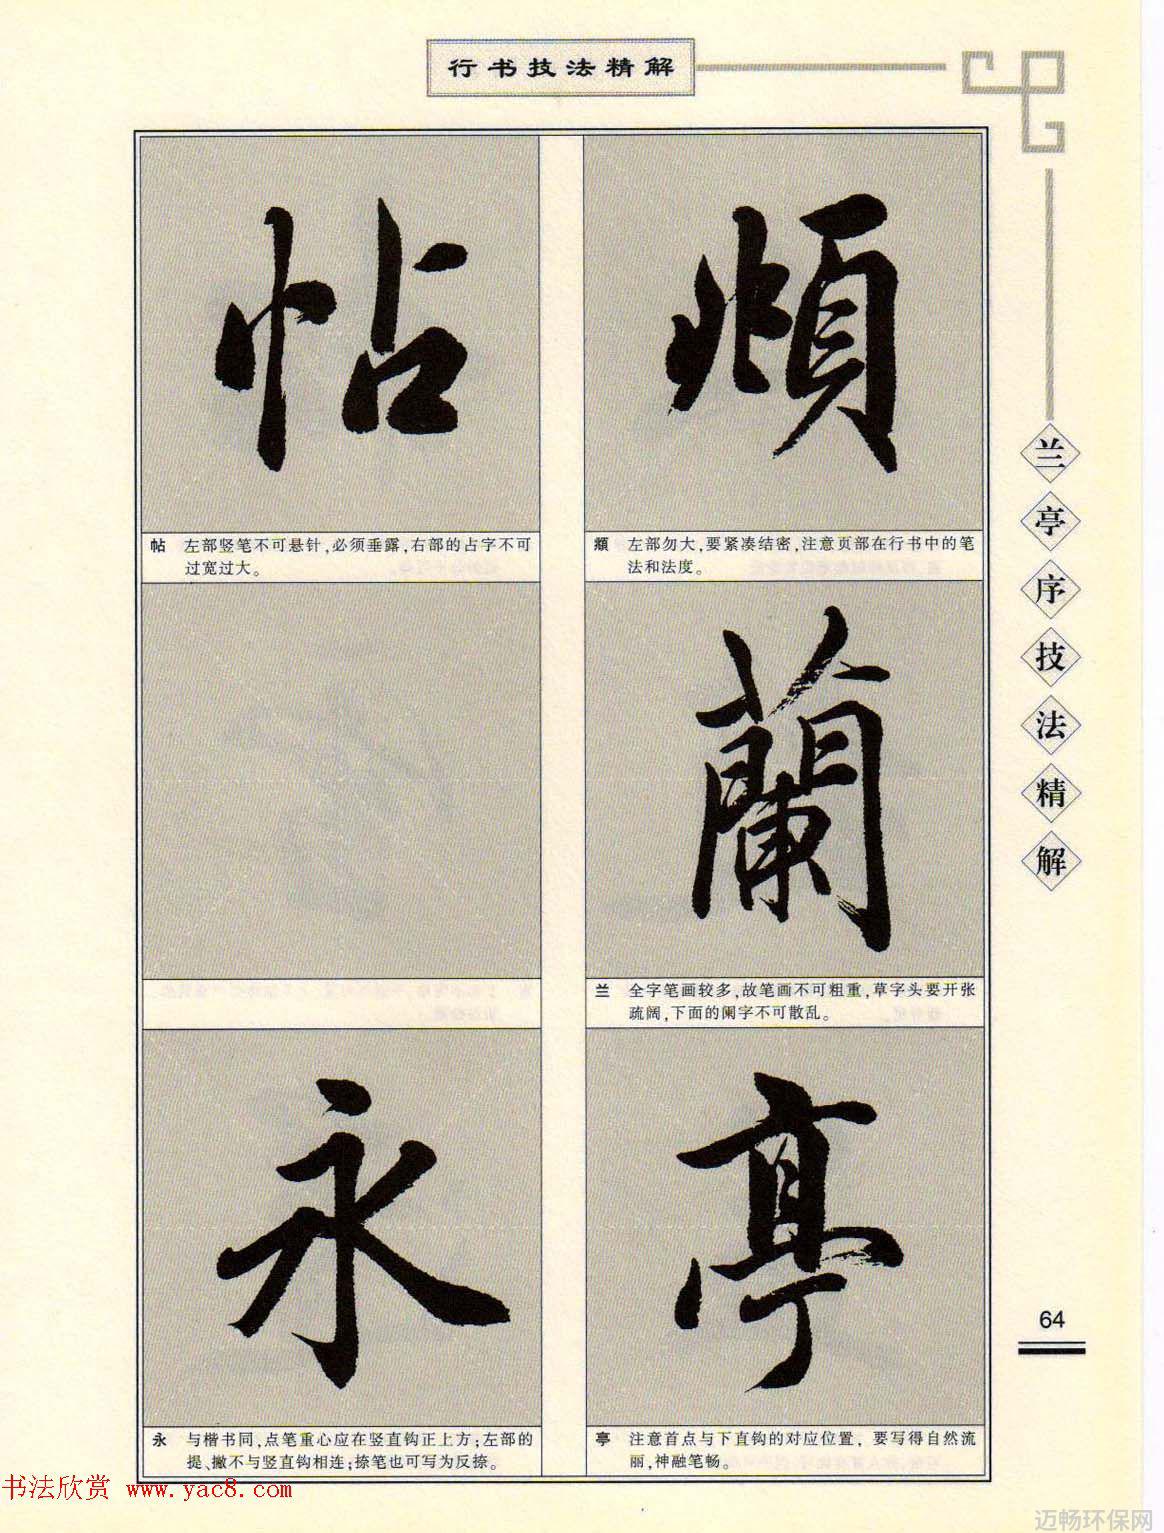 行书技法精解
帖
頫
帖 左部竖笔不可悬针,必须垂露,右部的占字不可
过宽过大。
頫 左部勿大,要紧凑结密,注意页部在行书中的笔
法和法度。
蘭
兰 全字笔画较多,故笔画不可粗重,草字头要开张
疏阔,下面的阑字不可散乱。
永
亭
永 与楷书同,点笔重心应在竖直钩正上方;左部的
提、撇不与竖直钩相连;捺笔也可写为反捺。
亭 注意首点与下直钩的对应位置，要写得自然流
丽,神融笔畅。
兰亭序技法精解
64
书法欣赏 www.yac8.com
迈畅环保网